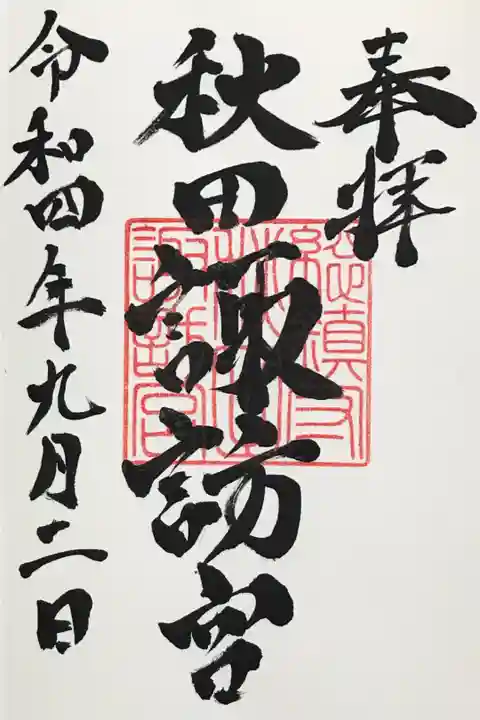 奉拝
秋田諏訪宮
令和四年九月二日